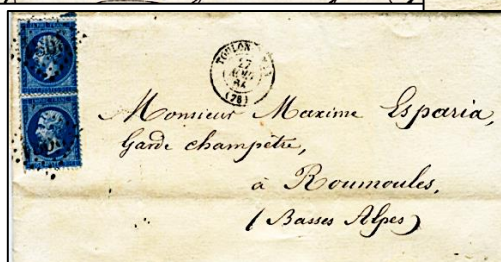 TOULON
27
(78)
Monsieur Maxime Esparia,
Garde champêtre,
à Roumoules,
(Basses Alpes)